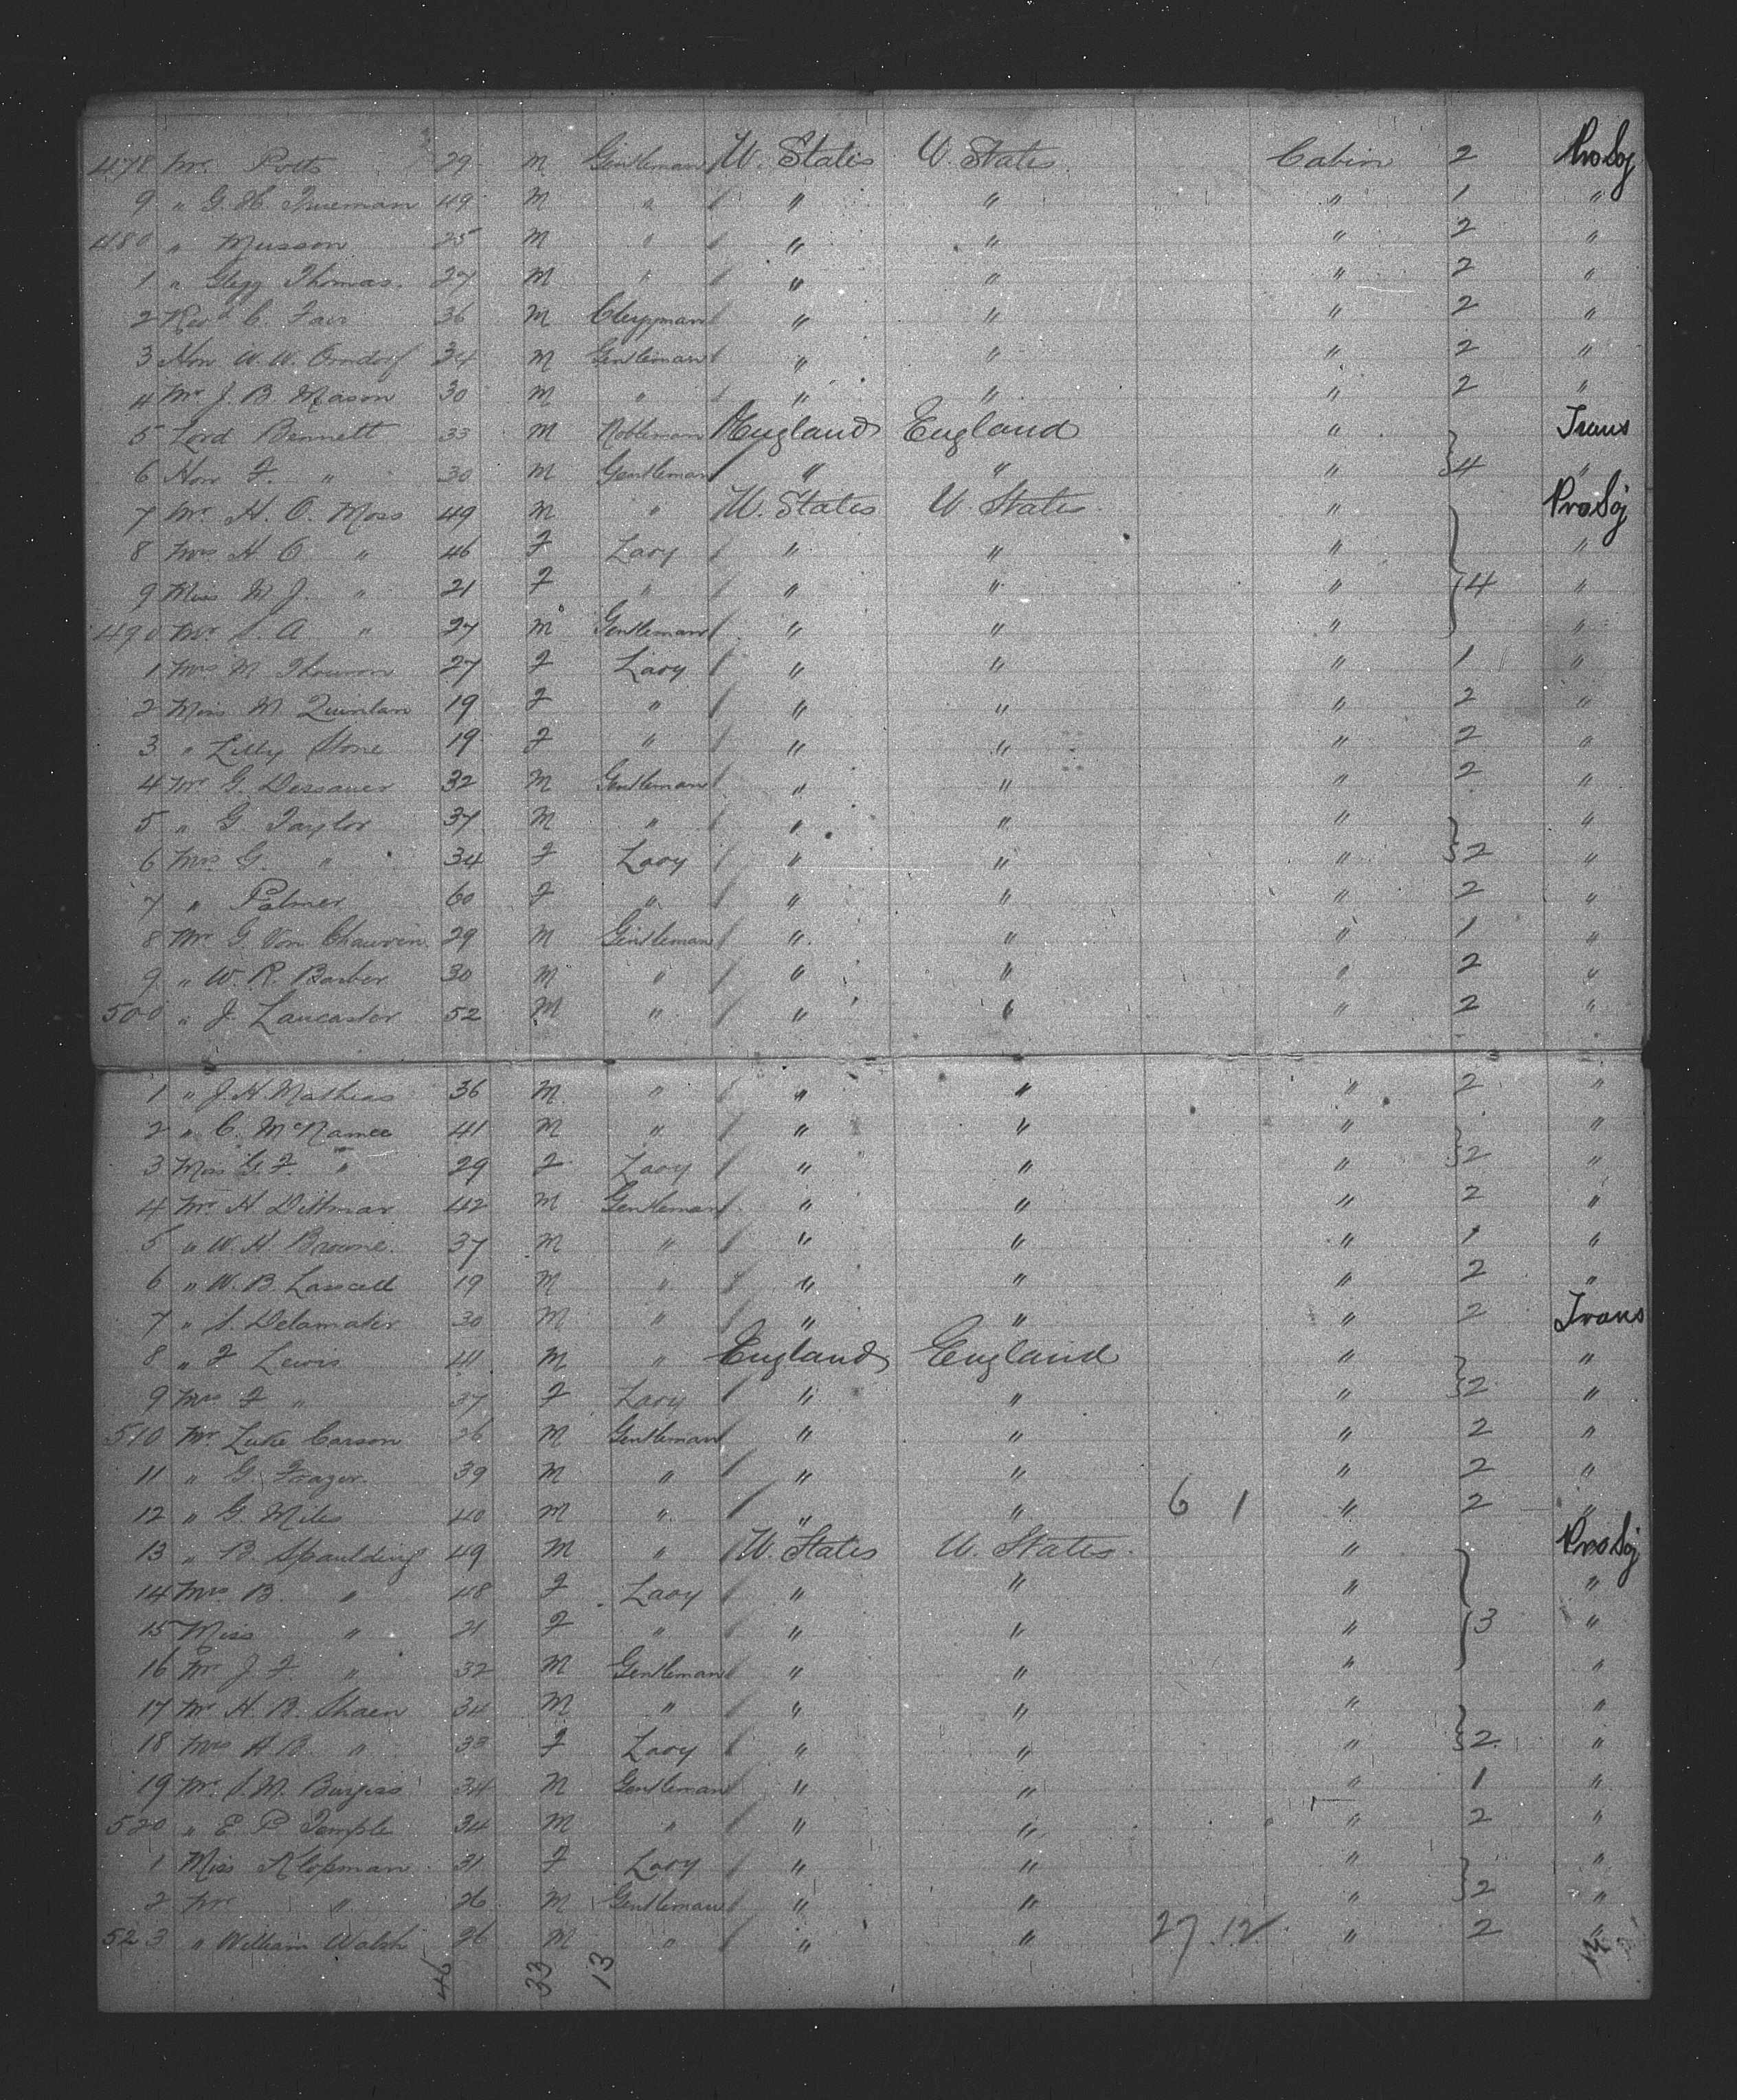 478 Mr. Potts 29 M Gentleman U. States U. States Cabin 2 Pro Soj
9 " G. H. Trueman 49 M " " " " 1 "
480 " Musson 25 M " " " " 2 "
1 " Glegg Thomas. 27 M " " " " 2 "
2 Revd C. Fair 36 M Clergyman " " " 2 "
3 Hon W. W. Orndorf 34 M Gentleman " " " 2 "
4 Mr J. B. Mason 30 M " " " " 2 "
5 Lord Bennett 33 M Nobleman England England " Trans
6 Hon F. " 30 M Gentleman " " " } 4 "
7 Mr. H. O. Moss 49 M " U. States U. States. " Pro Soj
8 Mrs H. O " 46 F Lady " " " "
9 Miss M J. " 21 F " " " " } 4 "
490 Mr S. A. " 27 M Gentleman " " " "
1 Mrs M 27 F Lady " " " 1 "
2 Miss M Quinlan 19 F " " " " 2 "
3 " Lilly Stone 19 F " " " " 2 "
4 Mr G. Dessauer 32 M Gentleman " " " 2 "
5 " G Taylor 37 M " " " " "
6 Mrs G. " 34 F Lady " " " } 2 "
7 " Palmer 60 F " " " " 2 "
8 Mr G. Von Chauvin 29 M Gentleman " " " 1 "
9 " W. R. Barber 30 M " " " " 2 "
500 " J. Lancaster 52 M " " " " 2 "
1 " J. H. Mathias 36 M " " " " 2 "
2 " C. McNamee 41 M " " " " "
3 Mrs G. F. " 29 F Lady " " " } 2 "
4 Mr. H Dittmar 42 M Gentleman " " " 2 "
5 " W. H Browne. 37 M " " " " 1 "
6 " W. B. Lascell 19 M " " " " 2 "
7 " S. Delamater 30 M " " " " 2 Trans
8 " F Lewis 41 M " England England " "
9 Mrs F " 37 F Lady " " " } 2 "
510 Mr. Luke Carson 26 M Gentleman " " " 2 "
11 " G. Frazer 39 M " " " " 2 "
12 " G. Miles 40 M " " " 6 1 " 2 "
13 " B. Spaulding 49 M " U. States U. States. " Pro Soj
14 Mrs B. " 48 F Lady " " " "
15 Miss " 21 F " " " " } 3 "
16 Mr J F " 32 M Gentleman " " " "
17 Mr H. B. Shaen 34 M " " " " "
18 Mrs H B. " 33 F Lady " " " } 2 "
19 Mr. S. M. Burgess 34 M Gentleman " " " 1 "
520 " E P Temple 34 M " " " " 2 "
1 Miss Klopman 31 F Lady " " " "
2 Mr " 26 M Gentleman " " " } 2 "
523 " William Walsh 26 M " " " 27 12 " 2 "
46 33 13